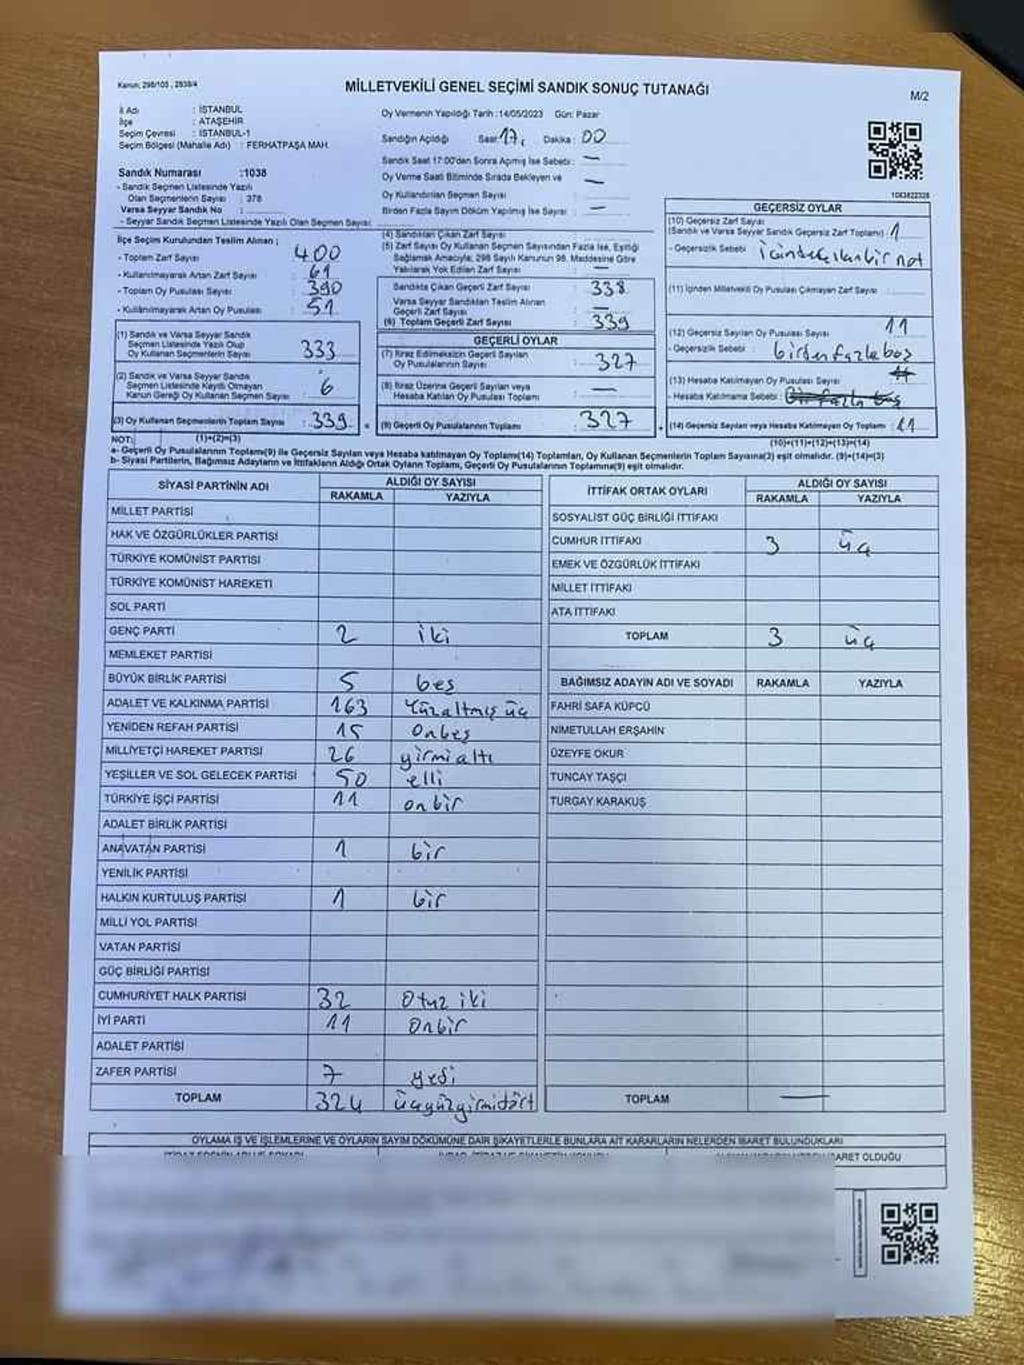 Kanun: 298/105 , 2839/4
MİLLETVEKİLİ GENEL SEÇİMİ SANDIK SONUÇ TUTANAĞI
M/2
İl Adı : İSTANBUL
İlçe : ATAŞEHİR
Seçim Çevresi : İSTANBUL-1
Seçim Bölgesi (Mahalle Adı) : FERHATPAŞA MAH.
Oy Vermenin Yapıldığı Tarih :14/05/2023 Gün: Pazar
Sandığın Açıldığı Saat: 17, Dakika : 00
Sandık Saat 17:00'den Sonra Açmış İse Sebebi : —
Oy Verme Saati Bitiminde Sırada Bekleyen ve
Oy Kullandırılan Seçmen Sayısı —
Birden Fazla Sayım Döküm Yapılmış İse Sayısı : —
Sandık Numarası :1038
- Sandık Seçmen Listesinde Yazılı
Olan Seçmenlerin Sayısı : 378
Varsa Seyyar Sandık No :
- Seyyar Sandık Seçmen Listesinde Yazılı Olan Seçmen Sayısı:
İlçe Seçim Kurulundan Teslim Alınan ;
- Toplam Zarf Sayısı : 400
- Kullanılmayarak Artan Zarf Sayısı : 61
- Toplam Oy Pusulası Sayısı : 390
- Kullanılmayarak Artan Oy Pusulası : 51
(1) Sandık ve Varsa Seyyar Sandık
Seçmen Listesinde Yazılı Olup
Oy Kullanan Seçmenlerin Sayısı 333
(2) Sandık ve Varsa Seyyar Sandık
Seçmen Listesinde Kayıtlı Olmayan
Kanun Gereği Oy Kullanan Seçmen Sayısı : 6
(3) Oy Kullanan Seçmenlerin Toplam Sayısı : 339
(4) Sandıktan Çıkan Zarf Sayısı :
(5) Zarf Sayısı Oy Kullanan Seçmen Sayısından Fazla İse, Eşitliği
Sağlamak Amacıyla; 298 Sayılı Kanunun 98. Maddesine Göre
Yakılarak Yok Edilen Zarf Sayısı : —
Sandıkta Çıkan Geçerli Zarf Sayısı : 338
Varsa Seyyar Sandıktan Teslim Alınan
Geçerli Zarf Sayısı :
(6) Toplam Geçerli Zarf Sayısı : 339
GEÇERLİ OYLAR
(7) İtiraz Edilmeksizin Geçerli Sayılan
Oy Pusulalarının Sayısı : 327
(8) İtiraz Üzerine Geçerli Sayılan veya
Hesaba Katılan Oy Pusulası Toplamı : —
(9) Geçerli Oy Pusulalarının Toplamı : 327
1063822328
GEÇERSİZ OYLAR
(10) Geçersiz Zarf Sayısı
(Sandık ve Varsa Seyyar Sandık Geçersiz Zarf Toplamı) : 1
- Geçersizlik Sebebi : içinden çıkan bir not
(11) İçinden Milletvekili Oy Pusulası Çıkmayan Zarf Sayısı :
(12) Geçersiz Sayılan Oy Pusulası Sayısı : 11
- Geçersizlik Sebebi : birden fazla boş
(13) Hesaba Katılmayan Oy Pusulası Sayısı
- Hesaba Katılmama Sebebi :
(14) Geçersiz Sayılan veya Hesaba Katılmayan Oy Toplamı : 11
NOT: (1)+(2)=(3)
(10)+(11)+(12)+(13)=(14)
a- Geçerli Oy Pusulalarının Toplamı(9) ile Geçersiz Sayılan veya Hesaba katılmayan Oy Toplamı(14) Toplamları, Oy Kullanan Seçmenlerin Toplam Sayısına(3) eşit olmalıdır. (9)+(14)=(3)
b- Siyasi Partilerin, Bağımsız Adayların ve İttifakların Aldığı Ortak Oyların Toplamı, Geçerli Oy Pusulalarının Toplamına(9) eşit olmalıdır.
SİYASİ PARTİNİN ADI ALDIĞI OY SAYISI
RAKAMLA YAZIYLA
MİLLET PARTİSİ
HAK VE ÖZGÜRLÜKLER PARTİSİ
TÜRKİYE KOMÜNİST PARTİSİ
TÜRKİYE KOMÜNİST HAREKETİ
SOL PARTİ
GENÇ PARTİ 2 iki
MEMLEKET PARTİSİ
BÜYÜK BİRLİK PARTİSİ 5 beş
ADALET VE KALKINMA PARTİSİ 163 Yüzaltmış üç
YENİDEN REFAH PARTİSİ 15 Onbeş
MİLLİYETÇİ HAREKET PARTİSİ 26 yirmialtı
YEŞİLLER VE SOL GELECEK PARTİSİ 50 elli
TÜRKİYE İŞÇİ PARTİSİ 11 onbir
ADALET BİRLİK PARTİSİ
ANAVATAN PARTİSİ 1 bir
YENİLİK PARTİSİ
HALKIN KURTULUŞ PARTİSİ 1 bir
MİLLİ YOL PARTİSİ
VATAN PARTİSİ
GÜÇ BİRLİĞİ PARTİSİ
CUMHURİYET HALK PARTİSİ 32 Otuz iki
İYİ PARTİ 11 Onbir
ADALET PARTİSİ
ZAFER PARTİSİ 7 yedi
TOPLAM 324 üçyüzyirmidört
İTTİFAK ORTAK OYLARI ALDIĞI OY SAYISI
RAKAMLA YAZIYLA
SOSYALİST GÜÇ BİRLİĞİ İTTİFAKI
CUMHUR İTTİFAKI 3 üç
EMEK VE ÖZGÜRLÜK İTTİFAKI
MİLLET İTTİFAKI
ATA İTTİFAKI
TOPLAM 3 üç
BAĞIMSIZ ADAYIN ADI VE SOYADI RAKAMLA YAZIYLA
FAHRİ SAFA KÜPCÜ
NİMETULLAH ERŞAHİN
ÜZEYFE OKUR
TUNCAY TAŞÇI
TURGAY KARAKUŞ
TOPLAM —
OYLAMA İŞ VE İŞLEMLERİNE VE OYLARIN SAYIM DÖKÜMÜNE DAİR ŞİKAYETLERLE BUNLARA AİT KARARLARIN NELERDEN İBARET BULUNDUKLARI
İBARET OLDUĞU